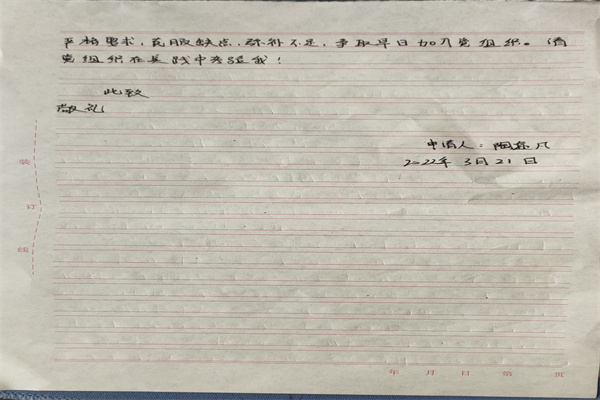 严格要求,克服缺点,弥补不足,争取早日加入党组织。请
党组织在实践中考验我!
此致
敬礼
申请人:陶磊凡
2022年3月21日
装
订
线
年 月 日 第 页